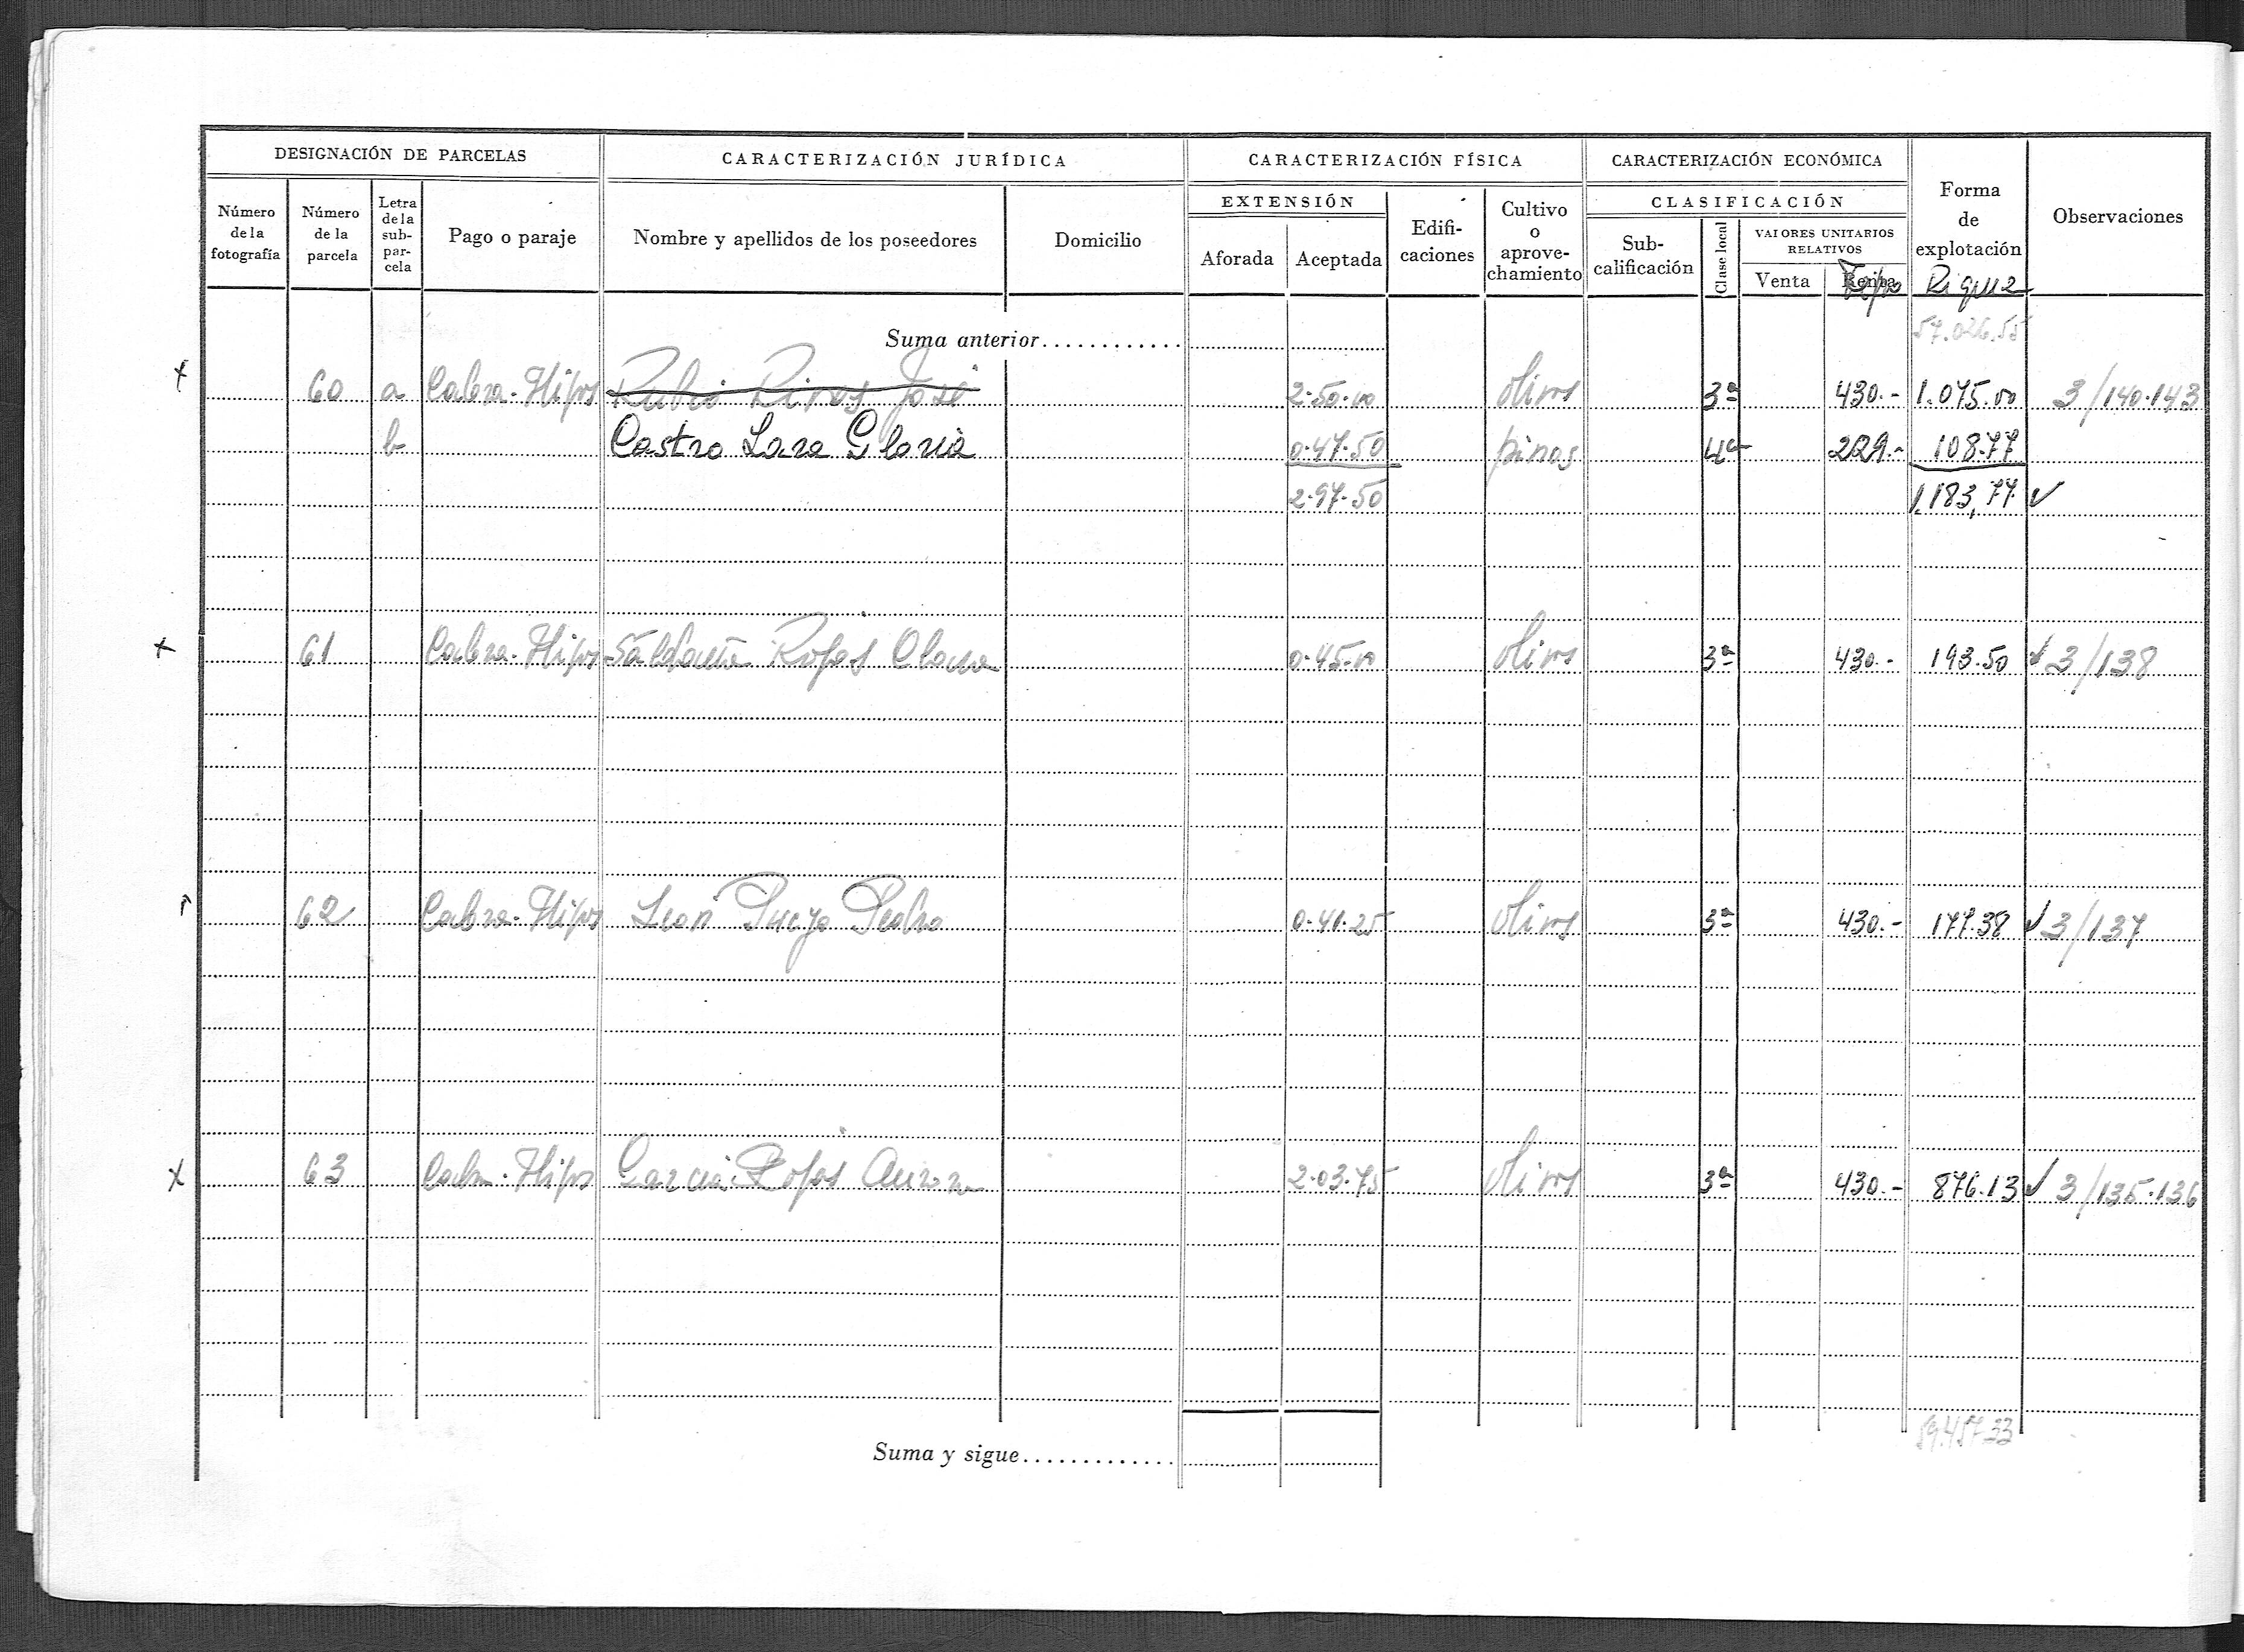 DESIGNACIÓN DE PARCELAS CARACTERIZACIÓN JURÍDICA CARACTERIZACIÓN FÍSICA CARACTERIZACIÓN ECONÓMICA Forma de explotación Observaciones
Número de la fotografía Número de la parcela Letra de la sub-par-cela Pago o paraje Nombre y apellidos de los poseedores Domicilio EXTENSIÓN Edifi-caciones Cultivo o aprove-chamiento CLASIFICACIÓN
Aforada Aceptada Sub-calificación Clase local VALORES UNITARIOS RELATIVOS
Venta Renta Tipo Riqueza
Suma anterior............ 57.026.55
60 a Cabra-Higos Rubio Rivas José 2-50-00 olivos 3ª 430.- 1.075.00 3/140-143
b Castro Lara Gloria 0-47-50 pinos 4ª 229.- 108.77
2-97-50 1.183,77 ✓
61 Cabra-Higos Saldaña Rojas 0-45-00 olivos 3ª 430.- 193.50 ✓ 3/138
62 Cabra-Higos León Pedro 0-41-25 olivos 3ª 430.- 177.38 ✓ 3/137
63 Cabra-Higos García Rojas Aurora 2-03-75 olivos 3ª 430.- 876.13 ✓ 3/135-136
59.457.33
Suma y sigue.............